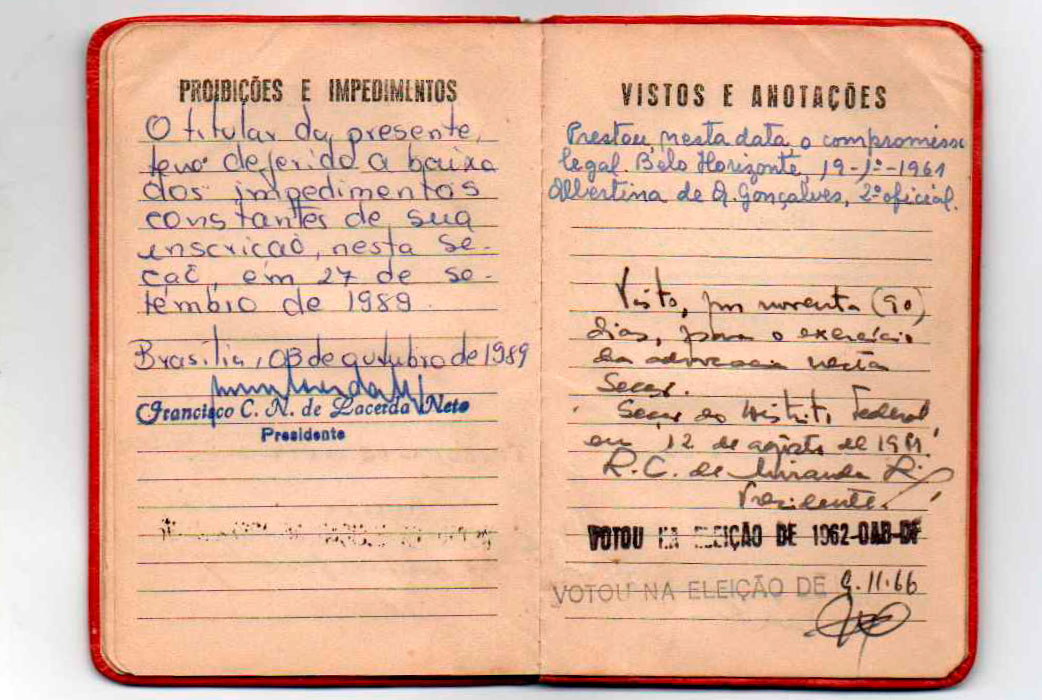 PROIBIÇÕES E IMPEDIMENTOS
O titular da presente,
teve deferido a baixa
dos impedimentos
constantes de sua
inscricaõ, nesta Se-
çaõ, em 27 de se-
tembro de 1989
Brasília, 03 de outubro de 1989
Francisco C. N. de Lacerda Neto
Presidente
VISTOS E ANOTAÇÕES
Prestou, nesta data, o compromisso
legal. Belo Horizonte, 19-1º-1961
Albertina de A. Gonçalves, 2º oficial.
Visto, por noventa (90)
dias, para o exercício
da advocacia nesta
Secção.
Secção do Distrito Federal,
em 12 de agôsto de 1961.
R. C. de Miranda
Presidente.
VOTOU NA ELEIÇÃO DE 1962-OAB-DF
VOTOU NA ELEIÇÃO DE 9.11.66